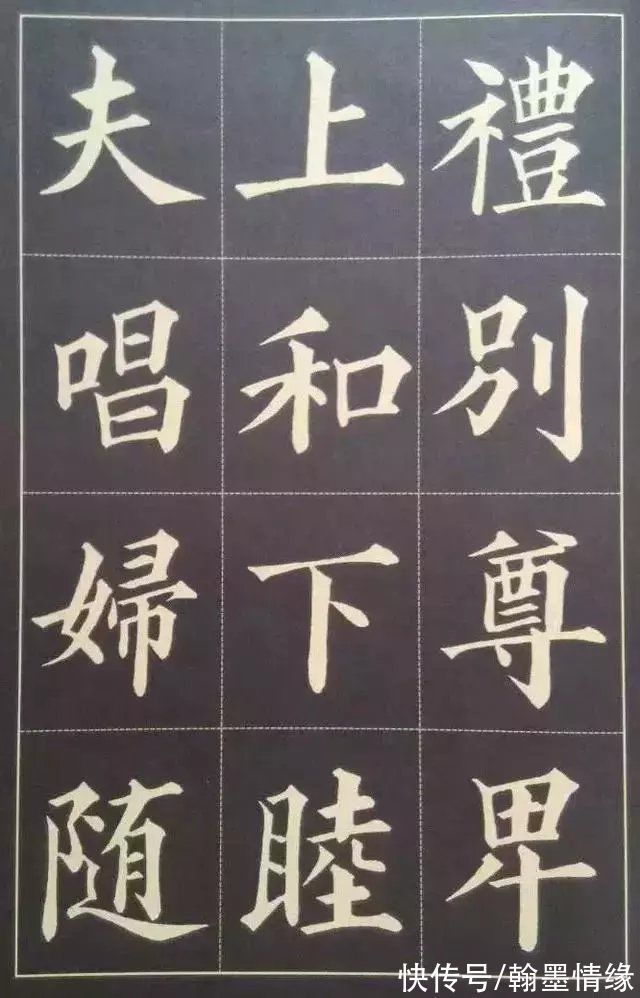 禮別尊卑
上和下睦
夫唱婦随
快传号/翰墨情缘